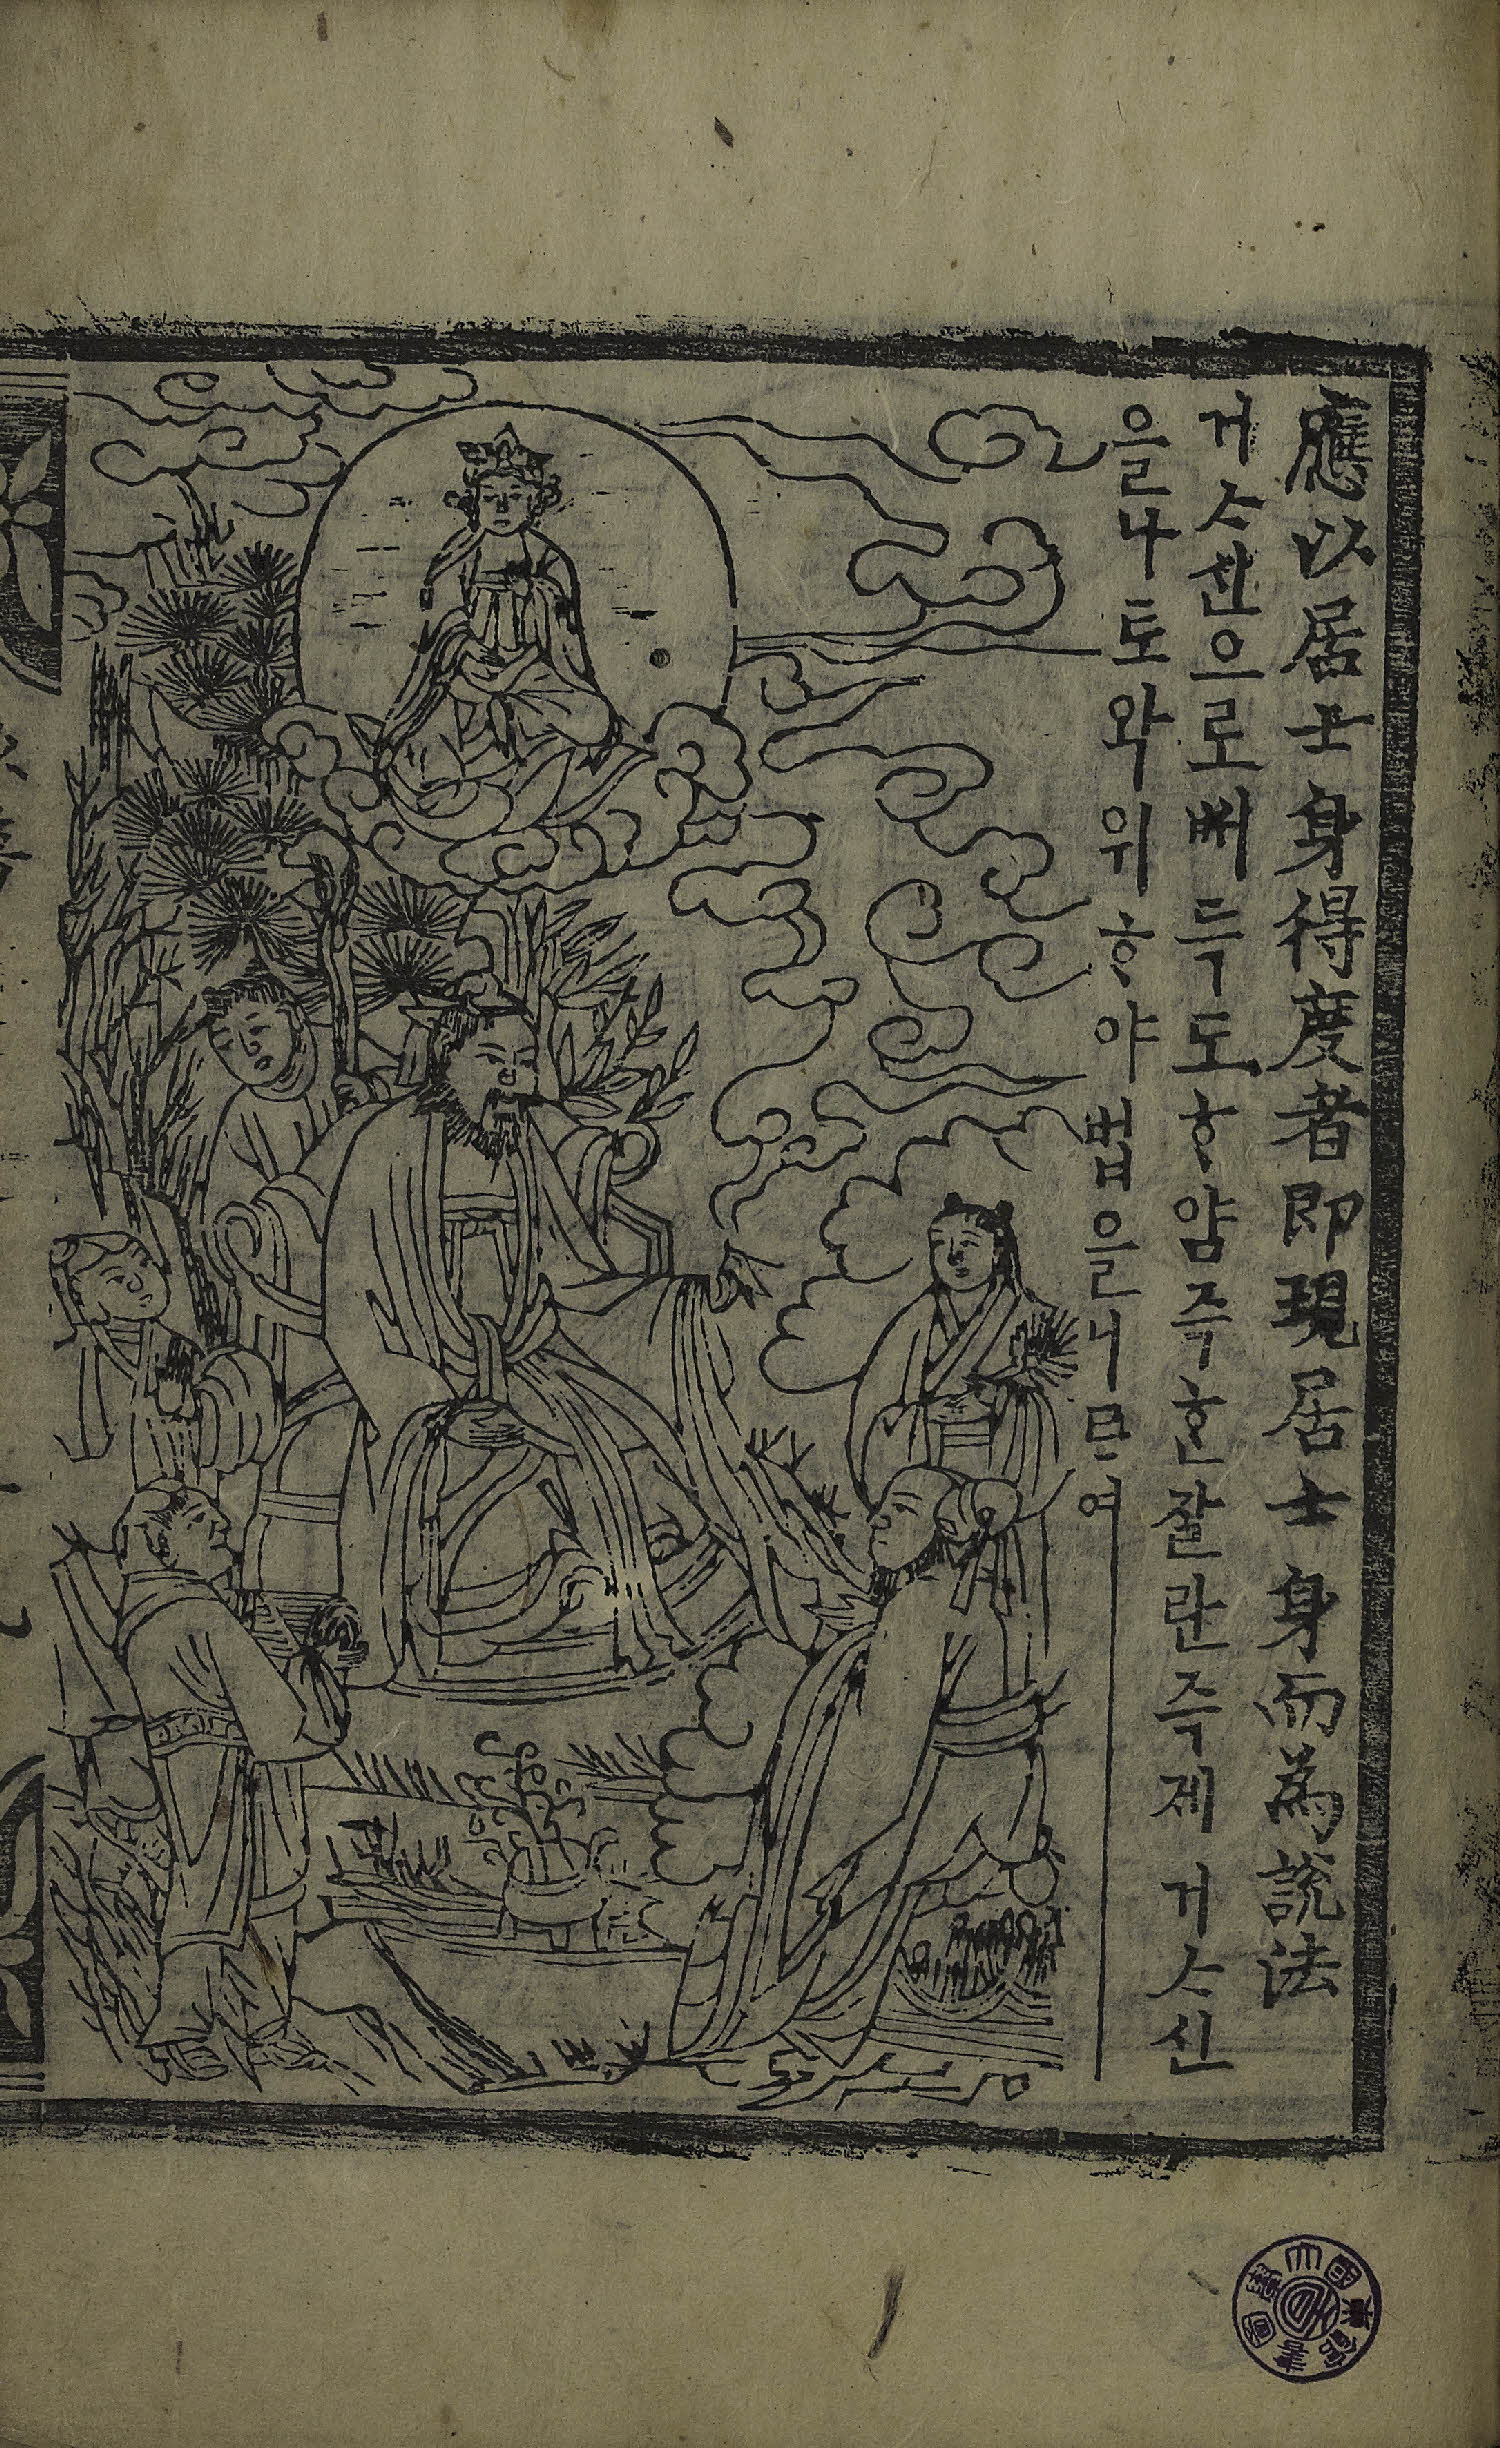 應以居士身得度者即現居士身而為說法
거ᄉᆞ신으로ᄡᅥ득도ᄒᆞ얌즉ᄒᆞᆫ쟐란즉제거ᄉᆞ신
을나토와위ᄒᆞ야법을니ᄅᆞ여